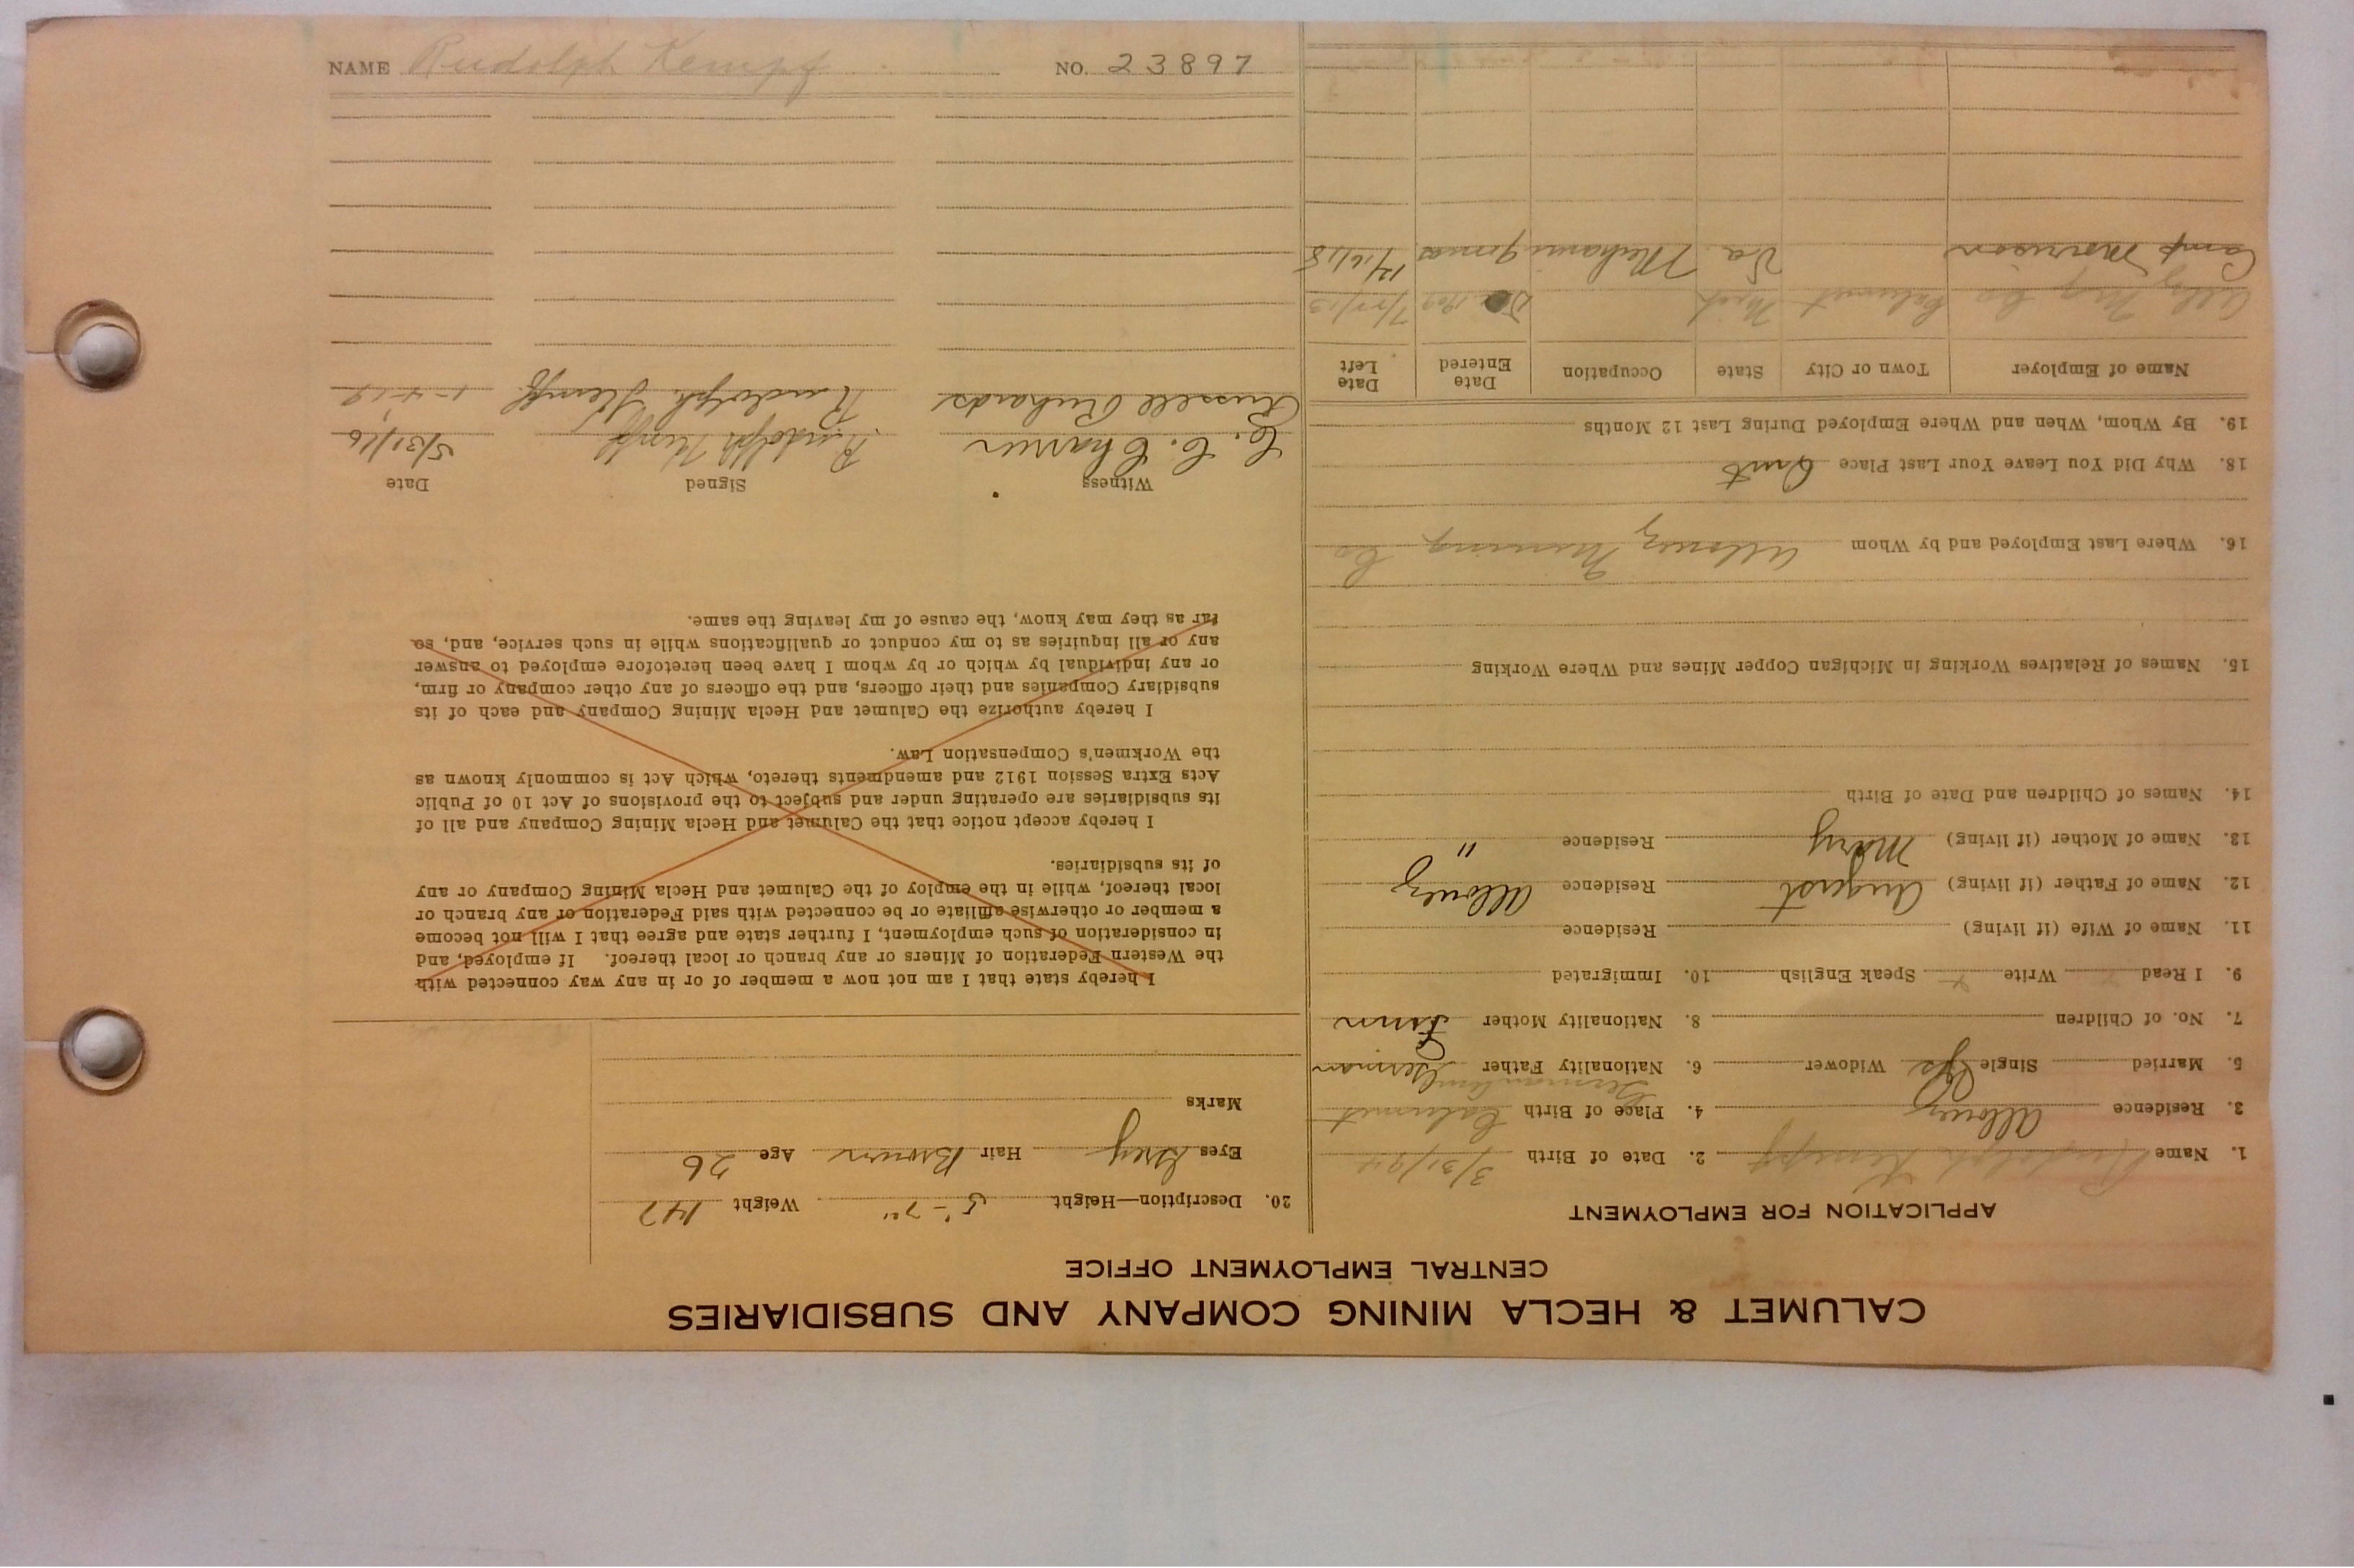 CALUMET & HECLA MINING COMPANY AND SUBSIDIARIES
CENTRAL EMPLOYMENT OFFICE
APPLICATION FOR EMPLOYMENT
1. Name Rudolph Kempf 2. Date of Birth 3/31/94
3. Residence Allouez 4. Place of Birth Calumet
5. Married Single Yes Widower 6. Nationality Father German
7. No. of Children 8. Nationality Mother Finn
9. I Read Write Speak English 10. Immigrated
11. Name of Wife (if living) Residence
12. Name of Father (if living) August Residence Allouez
13. Name of Mother (if living) Mary Residence "
14. Names of Children and Date of Birth
15. Names of Relatives Working in Michigan Copper Mines and Where Working
16. Where Last Employed and by Whom Allouez Mining Co
18. Why Did You Leave Your Last Place Quit
19. By Whom, When and Where Employed During Last 12 Months
Name of Employer Town or City State Occupation Date Entered Date Left
Alloy Mng Co Calumet Mich 1909
Camp Morrison Va Mechanic 12/16/18
20. Description—Height 5'-7" Weight 147
Eyes Grey Hair Brown Age 26
Marks
I hereby state that I am not now a member of or in any way connected with
the Western Federation of Miners or any branch or local thereof. If employed, and
in consideration of such employment, I further state and agree that I will not become
a member or otherwise affiliate or be connected with said Federation or any branch or
local thereof, while in the employ of the Calumet and Hecla Mining Company or any
of its subsidiaries.
I hereby accept notice that the Calumet and Hecla Mining Company and all of
its subsidiaries are operating under and subject to the provisions of Act 10 of Public
Acts Extra Session 1912 and amendments thereto, which Act is commonly known as
the Workmen's Compensation Law.
I hereby authorize the Calumet and Hecla Mining Company and each of its
subsidiary Companies and their officers, and the officers of any other company or firm,
or any individual by which or by whom I have been heretofore employed to answer
any or all inquiries as to my conduct or qualifications while in such service, and, so
far as they may know, the cause of my leaving the same.
Witness Signed Date
C. C. Rudolph Kempf 5/31/16
Russell Richards Rudolph Kempf 1-4-19
NAME Rudolph Kempf NO. 23897